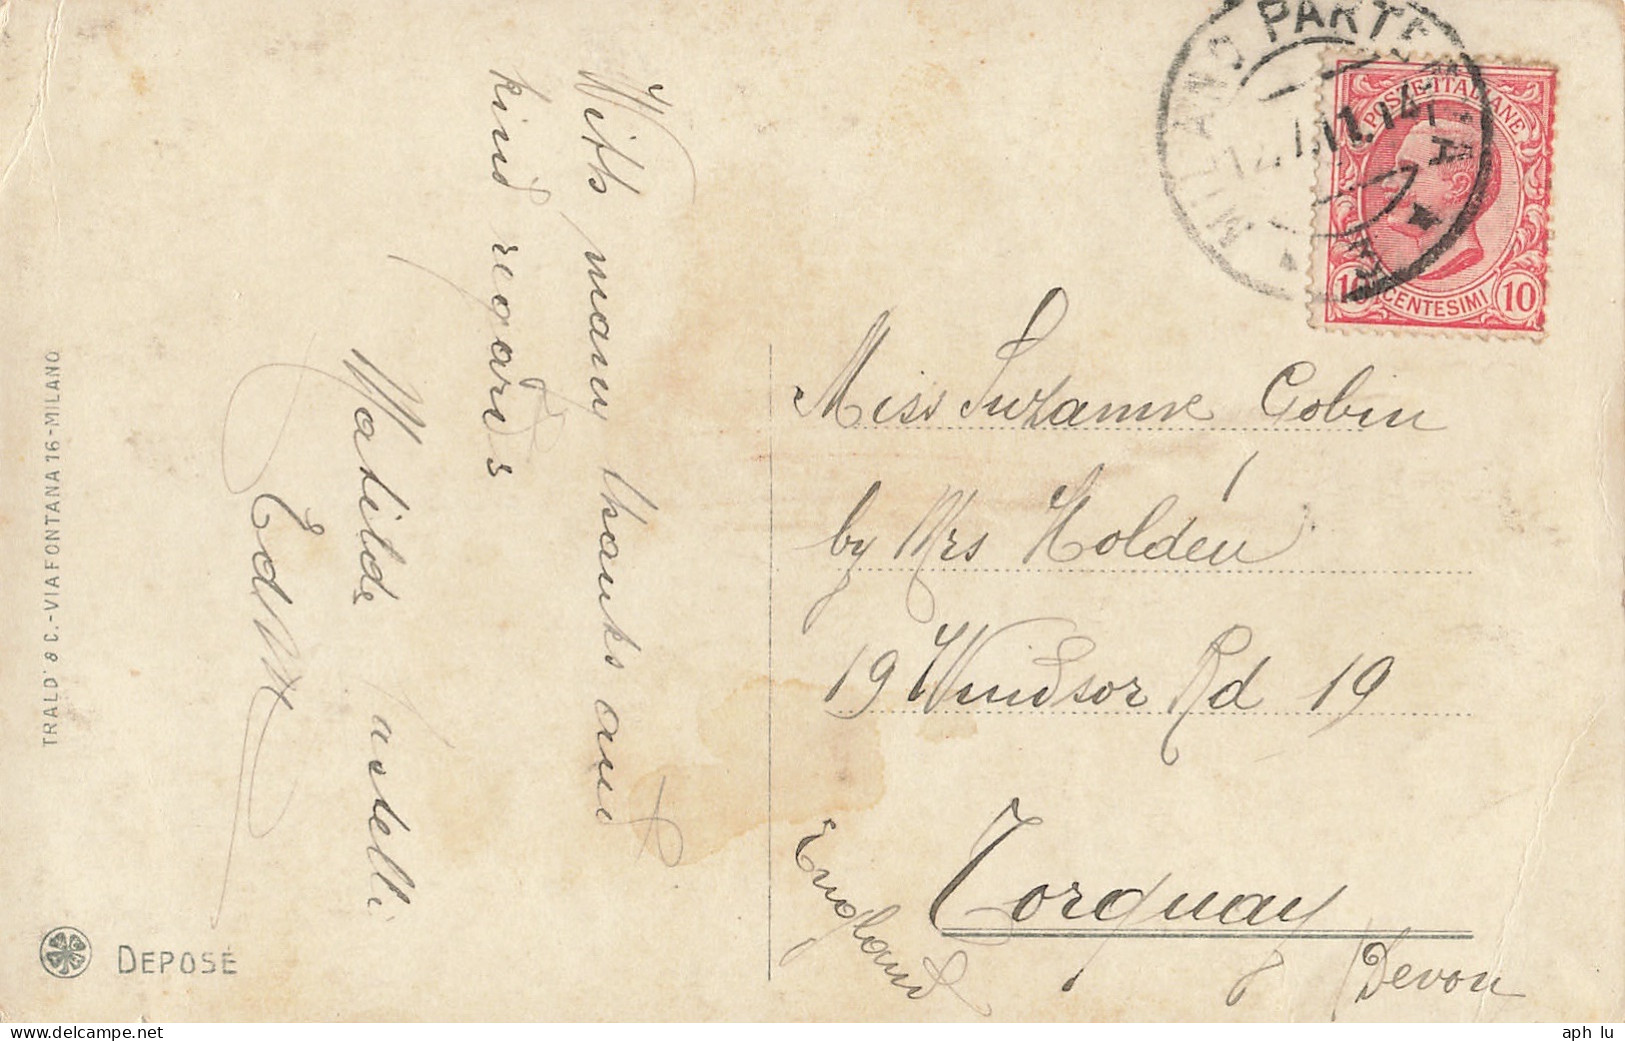 With many thanks and
kind regards
Matilde
Ed
TRALD' & C. - VIA FONTANA 16 - MILANO
DEPOSÉ
MILANO PARTENZA
POSTE ITALIANE
10 CENTESIMI 10
Miss Suzanne Gobin
by Mrs Holden
19 Windsor Rd 19
Torquay
Devon
England
www.delcampe.net
aph lu